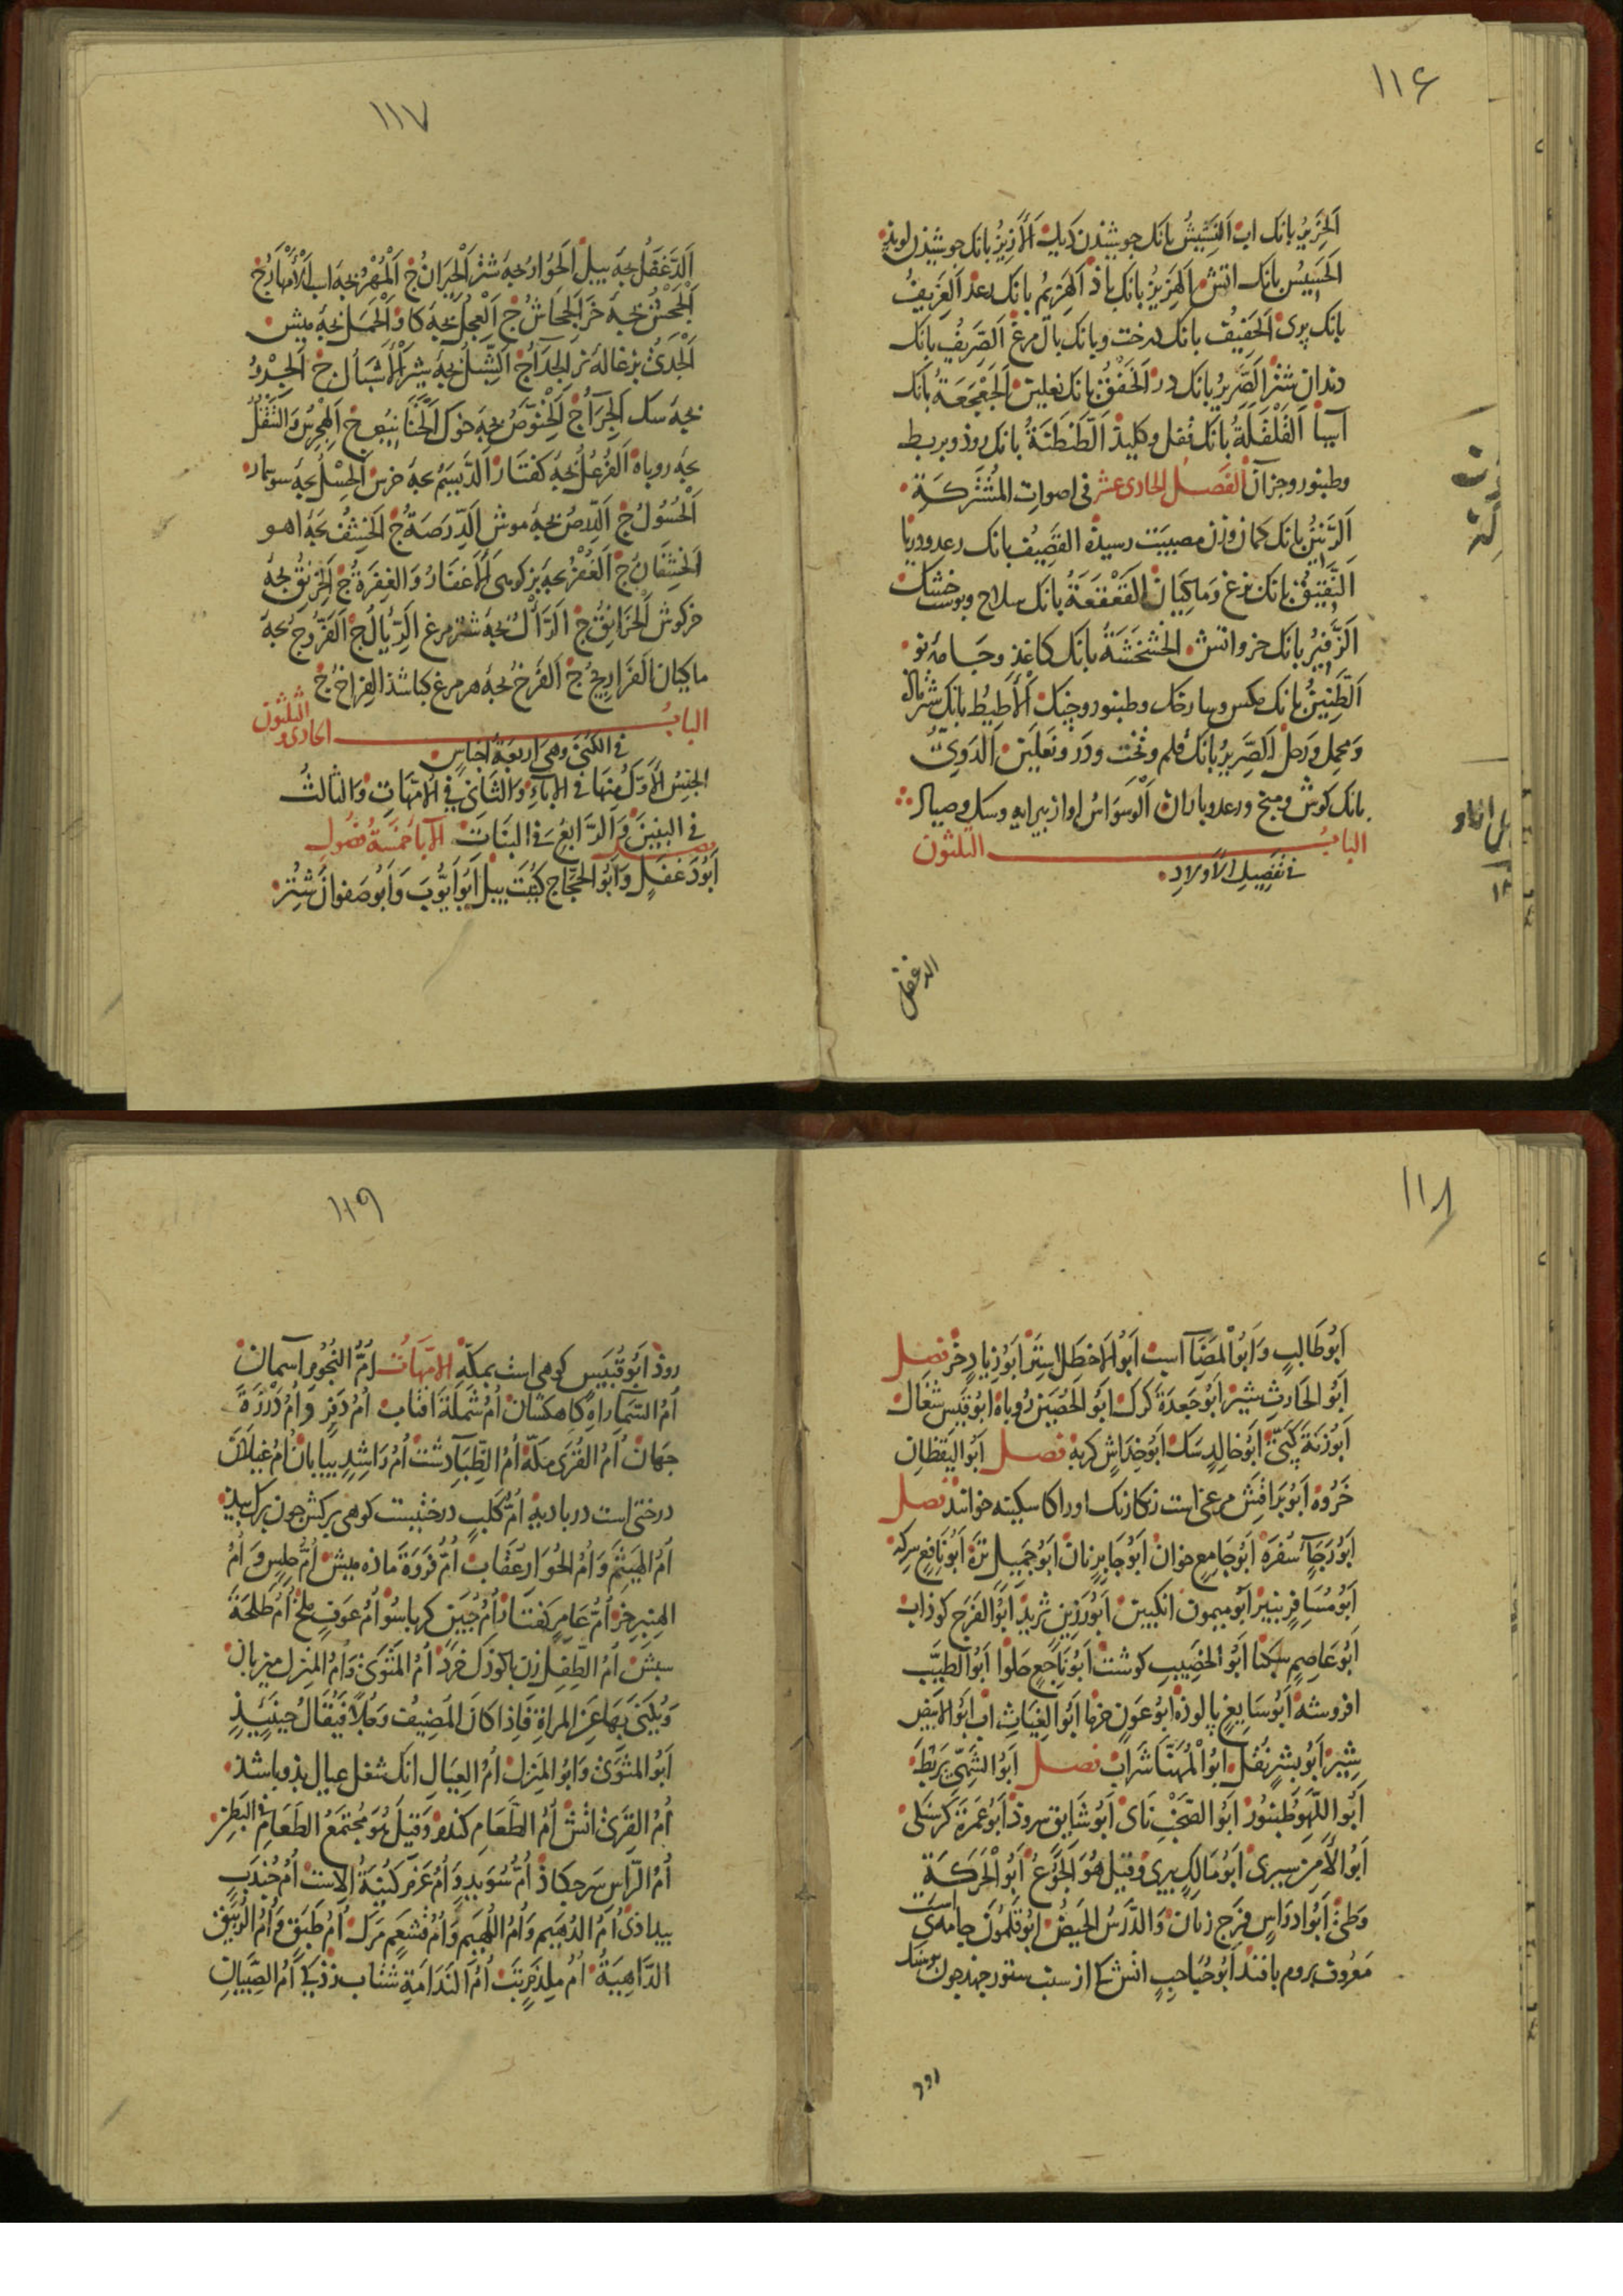 ١١۶
اَلخَرِيرُ بانك اب اَلنَّشِيشُ بانك جوشيذن ديك اَلْأَزِيزُ بانك جوشيذن لويذ
اَلحَسِيسُ بانك اتش اَلهَزِيزُ بانك باذ اَلهَزِيمُ بانك رعذ اَلعَزِيفُ
بانك پری اَلحَفِيفُ بانك درخت وبانك بال مرغ اَلصَّرِيفُ بانك
دندان شتر اَلصَّرِيرُ بانك در اَلخَفْقُ بانك نعلين اَلجَعْجَعَةُ بانك
آسيا اَلقَلْقَلَةُ بانك قفل وكليذ اَلطَّنْطَنَةُ بانك روذ وبربط
وطنبور وجزآن الفَصلُ الحادى عشر فى اصوات المُشْتَركَةِ
اَلرَّنِينُ بانك كمان وزن مصيبت رسيده القَصِيفُ بانك رعد ودريا
اَلنَّقِيقُ بانك بزغ ومَاكِيَان اَلقَعْقَعَةُ بانك سلاح وپوست خشك
اَلزَّفِيرُ بانك خر واتش الخَشْخَشَةُ بانك كاغذ وجامهٔ نو
اَلطَّنِينُ بانك مكس وطنبور وچنك اَلْأَطِيطُ بانك شتر
ومحمل ورحل اَلصَّرِيرُ بانك قلم وتخت ودر ونعلين اَلدَوِيُّ
بانك كوش ومنج ورعد وباران اَلوَسوَاسُ اواز پيرايه وسك وصياد
البابُ الثلثون
فى تفصيل الأولادِ
الدغفل
١١٧
اَلدَّغفَلُ بچهٔ پيل اَلحُوَارُ بچهٔ شتر اَلْحِيرَانُ ج اَلْمُهْرُ بچهٔ اسب اَلْأَمْهَارُ ج
اَلْجَحْشُ بچهٔ خر اَلجِحَاشُ ج اَلْعِجْلُ بچهٔ كاو اَلْحَمَلُ بچهٔ ميش
اَلْجَدْىُ بزغالهٔ نر الجِدَآءُ ج اَلشِّبْلُ بچهٔ شير اَلْأَشْبَالُ ج اَلْجِرْوُ
بچهٔ سك اَلجِرَآءُ ج اَلْخِنَّوْصُ بچهٔ خوك اَلْخَنَانِيصُ ج اَلْهِجْرِسُ وَالتَّتْفُلُ
بچهٔ روباه اَلفُرْعُلُ بچهٔ كفتار اَلدَّيْسَمُ بچهٔ خرس اَلْحِسْلُ بچهٔ سوسمار
اَلْحُسُولُ ج اَلدِّرْصُ بچهٔ موش اَلدِّرَصَةُ ج اَلْخِشْفُ بچهٔ اهو
اَلْخِشْفَانُ ج اَلْغُفْرُ بچهٔ بز كوهى اَلْأَغفَارُ وَالغِفَرَةُ ج اَلخِرْنِقُ بچهٔ
خركوش اَلْخَرَانِقُ ج اَلرَّأْلُ بچهٔ شترمرغ اَلرِّئَالُ ج اَلْفَرُّوجُ بچهٔ
ماكيان اَلْفَرَارِيجُ ج اَلفَرْخُ بچهٔ هر مرغ كباشد الفِرَاخُ ج
البابُ الحادى والثلثون
فى الكُنَى وهى اربعة اجناسٍ
الجنسُ الأوّلُ منها فى الابآءِ والثانى فى الأمّهاتِ والثالثُ
فى البنينَ والرّابعُ فى البَنَاتِ الآباءُ خمسةُ فصولٍ
فصل
اَبُو دَغفَلٍ وَابُو الحَجَّاج كنيت پيل اَبُو اَيُّوبَ وَابُو صَفوَانَ شتر
١١٨
اَبُو طَالِبٍ وَاَبُو الْمَضَآءِ اسب اَبُو الاَخطَلِ استر اَبُو زِيَادٍ خر فصل
اَبُو الحَارِثِ شير اَبُو جَعدَةَ كرك اَبُو الحُصَينِ روباه ابُو قَيسٍ شغال
اَبُو زَنَّةَ كپى اَبُو خَالِدٍ سك اَبُو خِدَاشٍ كربه فصل اَبُو اليَقظَانِ
خروه اَبُو بَرَاقِشَ مرغى است رنكارنك اورا كاسكينه خوانند فصل
اَبُو رَجَاءٍ سفره اَبُو جَامِعٍ خوان اَبُو جَابِرٍ نان اَبُو جَمِيلٍ تره اَبُو نَافِعٍ سركه
اَبُو مُسَافِرٍ پنير اَبُو ميمون انكبين اَبُو رَزِينٍ ثريد اَبُو الفَرَج كوذاب
اَبُو عَاصِمٍ سكبا اَبُو الخَصِيبِ كوشت اَبُو نَاجِعٍ حلوا اَبُو الطيّب
افروشه اَبُو سَايِغٍ پالوذه ابُو عَونٍ خرما اَبُو الغِيَاثِ اب اَبُو الابيض
شير اَبُو بِشْرٍ نقل اَبُو الْمُهَنَّا شراب فصل اَبُو الشَهِىّ بربط
اَبُو اللّهو طنبور اَبُو الصَّخَبِ نای اَبُو شَايِقٍ سرود اَبُو عَمرَةَ كرسنكى
اَبُو الاَمن سيرى اَبُو مَالِكٍ پيرى وقيل هُوَ الجُوعُ اَبُو الحَركَةِ
وطئ اَبُو ادرَاسٍ فرج زنان وَالدَّرسُ الحَيضُ ابُو قَلَمُونَ جامه‌ى است
معروف بروم بافند اَبُو حُبَاحِبٍ اتش كه از سنب ستور جهد چون بوشنك
رود
١١٩
روذ اَبُو قُبَيسٍ كوهى است بمكّه الامّهاتُ اُمُّ النُّجُومِ آسمان
اُمُّ السَّمَاءِ راه كاهكشان اُمُّ شَملَةَ افتاب اُمُّ دَفرٍ وَاُمُّ دَرزَةَ
جهان اُمُّ القُرَى مكّه اُمُّ الظِّبَاءِ دشت اُمُّ رَاشِدٍ بيابان اُمُّ غَيلَانَ
درختى است در باديه اُمُّ كَلبٍ درختيست كوهى بركش چون برك بيد
اُمُّ الهَيثَمِ وَاُمُّ الحُوَارِ عقاب اُمُّ فَروَةَ ماذه ميش اُمُّ حِلسٍ وَاُمُّ
الهِنبِرِ خر اُمُّ عَامِرٍ كفتار اُمُّ حُبَينٍ كرباسو اُمُّ عَوفٍ ملخ اُمُّ طَلحَةَ
سبش اُمُّ الطِّفلِ زن باكوذك خرد اُمُّ المَثوَى وَاُمُّ المنزل ميزبان
وَيُكنَى بِهَا عن المرأةِ فَاِذا كان المُضِيفُ رَجُلًا فَيُقَالُ حِينَئِذٍ
اَبُو المثوَى وَابُو المَنزِل اُمُّ العِيَالِ انك شغل عيال بذو باشد
اُمُّ القِرَى اتش اُمُّ الطَّعَامِ كندم وَقِيلَ هُوَ مُجتَمَعُ الطَعَامِ فى البَطنِ
اُمُّ الرّاسِ سر چكاذ اُمُّ سُوَيدٍ وَاُمُّ عَزمٍ كنيةُ الاِست اُمُّ جُندَبٍ
بيدادى اُمُّ الدُّهَيمِ وَاُمُّ اللُّهَيمِ وَاُمُّ قَشعَمٍ مرك اُمُّ طَبَقٍ وَاُمُّ الرُّبَيقِ
الدَّاهِيَةُ اُمُّ مِلدَمٍ تب اُمُّ النَدَامَةِ شتاب زذكى اُمُّ الصِّبيَانِ